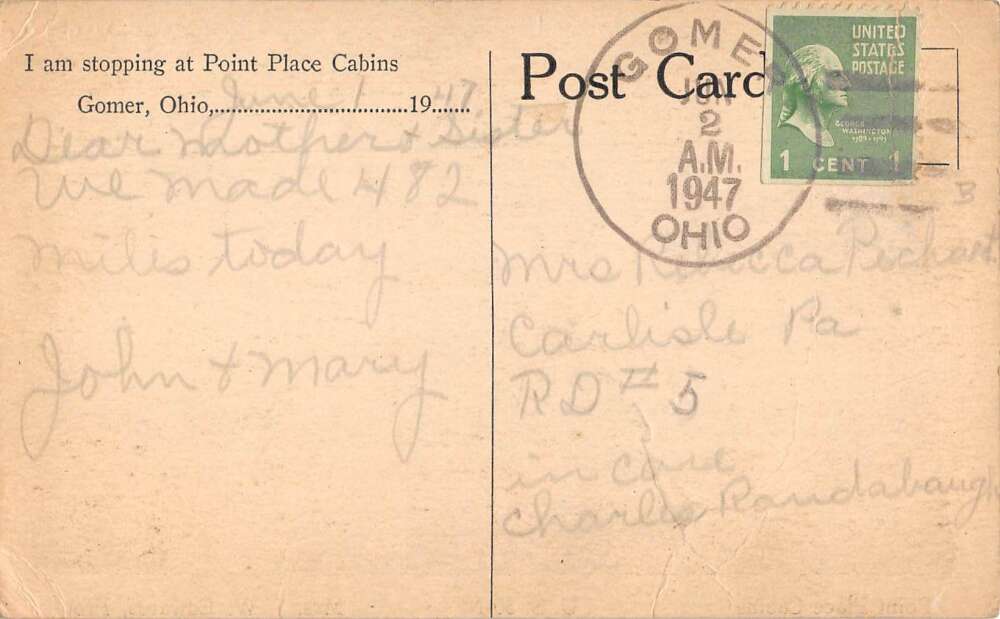 I am stopping at Point Place Cabins
Gomer, Ohio, June 1 1947
Dear Mother & Sister
We made 482
miles today
John & Mary
Post Card
GOMER
JUN
2
A.M.
1947
OHIO
UNITED
STATES
POSTAGE
GEORGE
WASHINGTON
1789-1797
1 CENT 1
Mrs Rebecca
Carlisle Pa
RD # 5
in care
Charles Raudabaugh